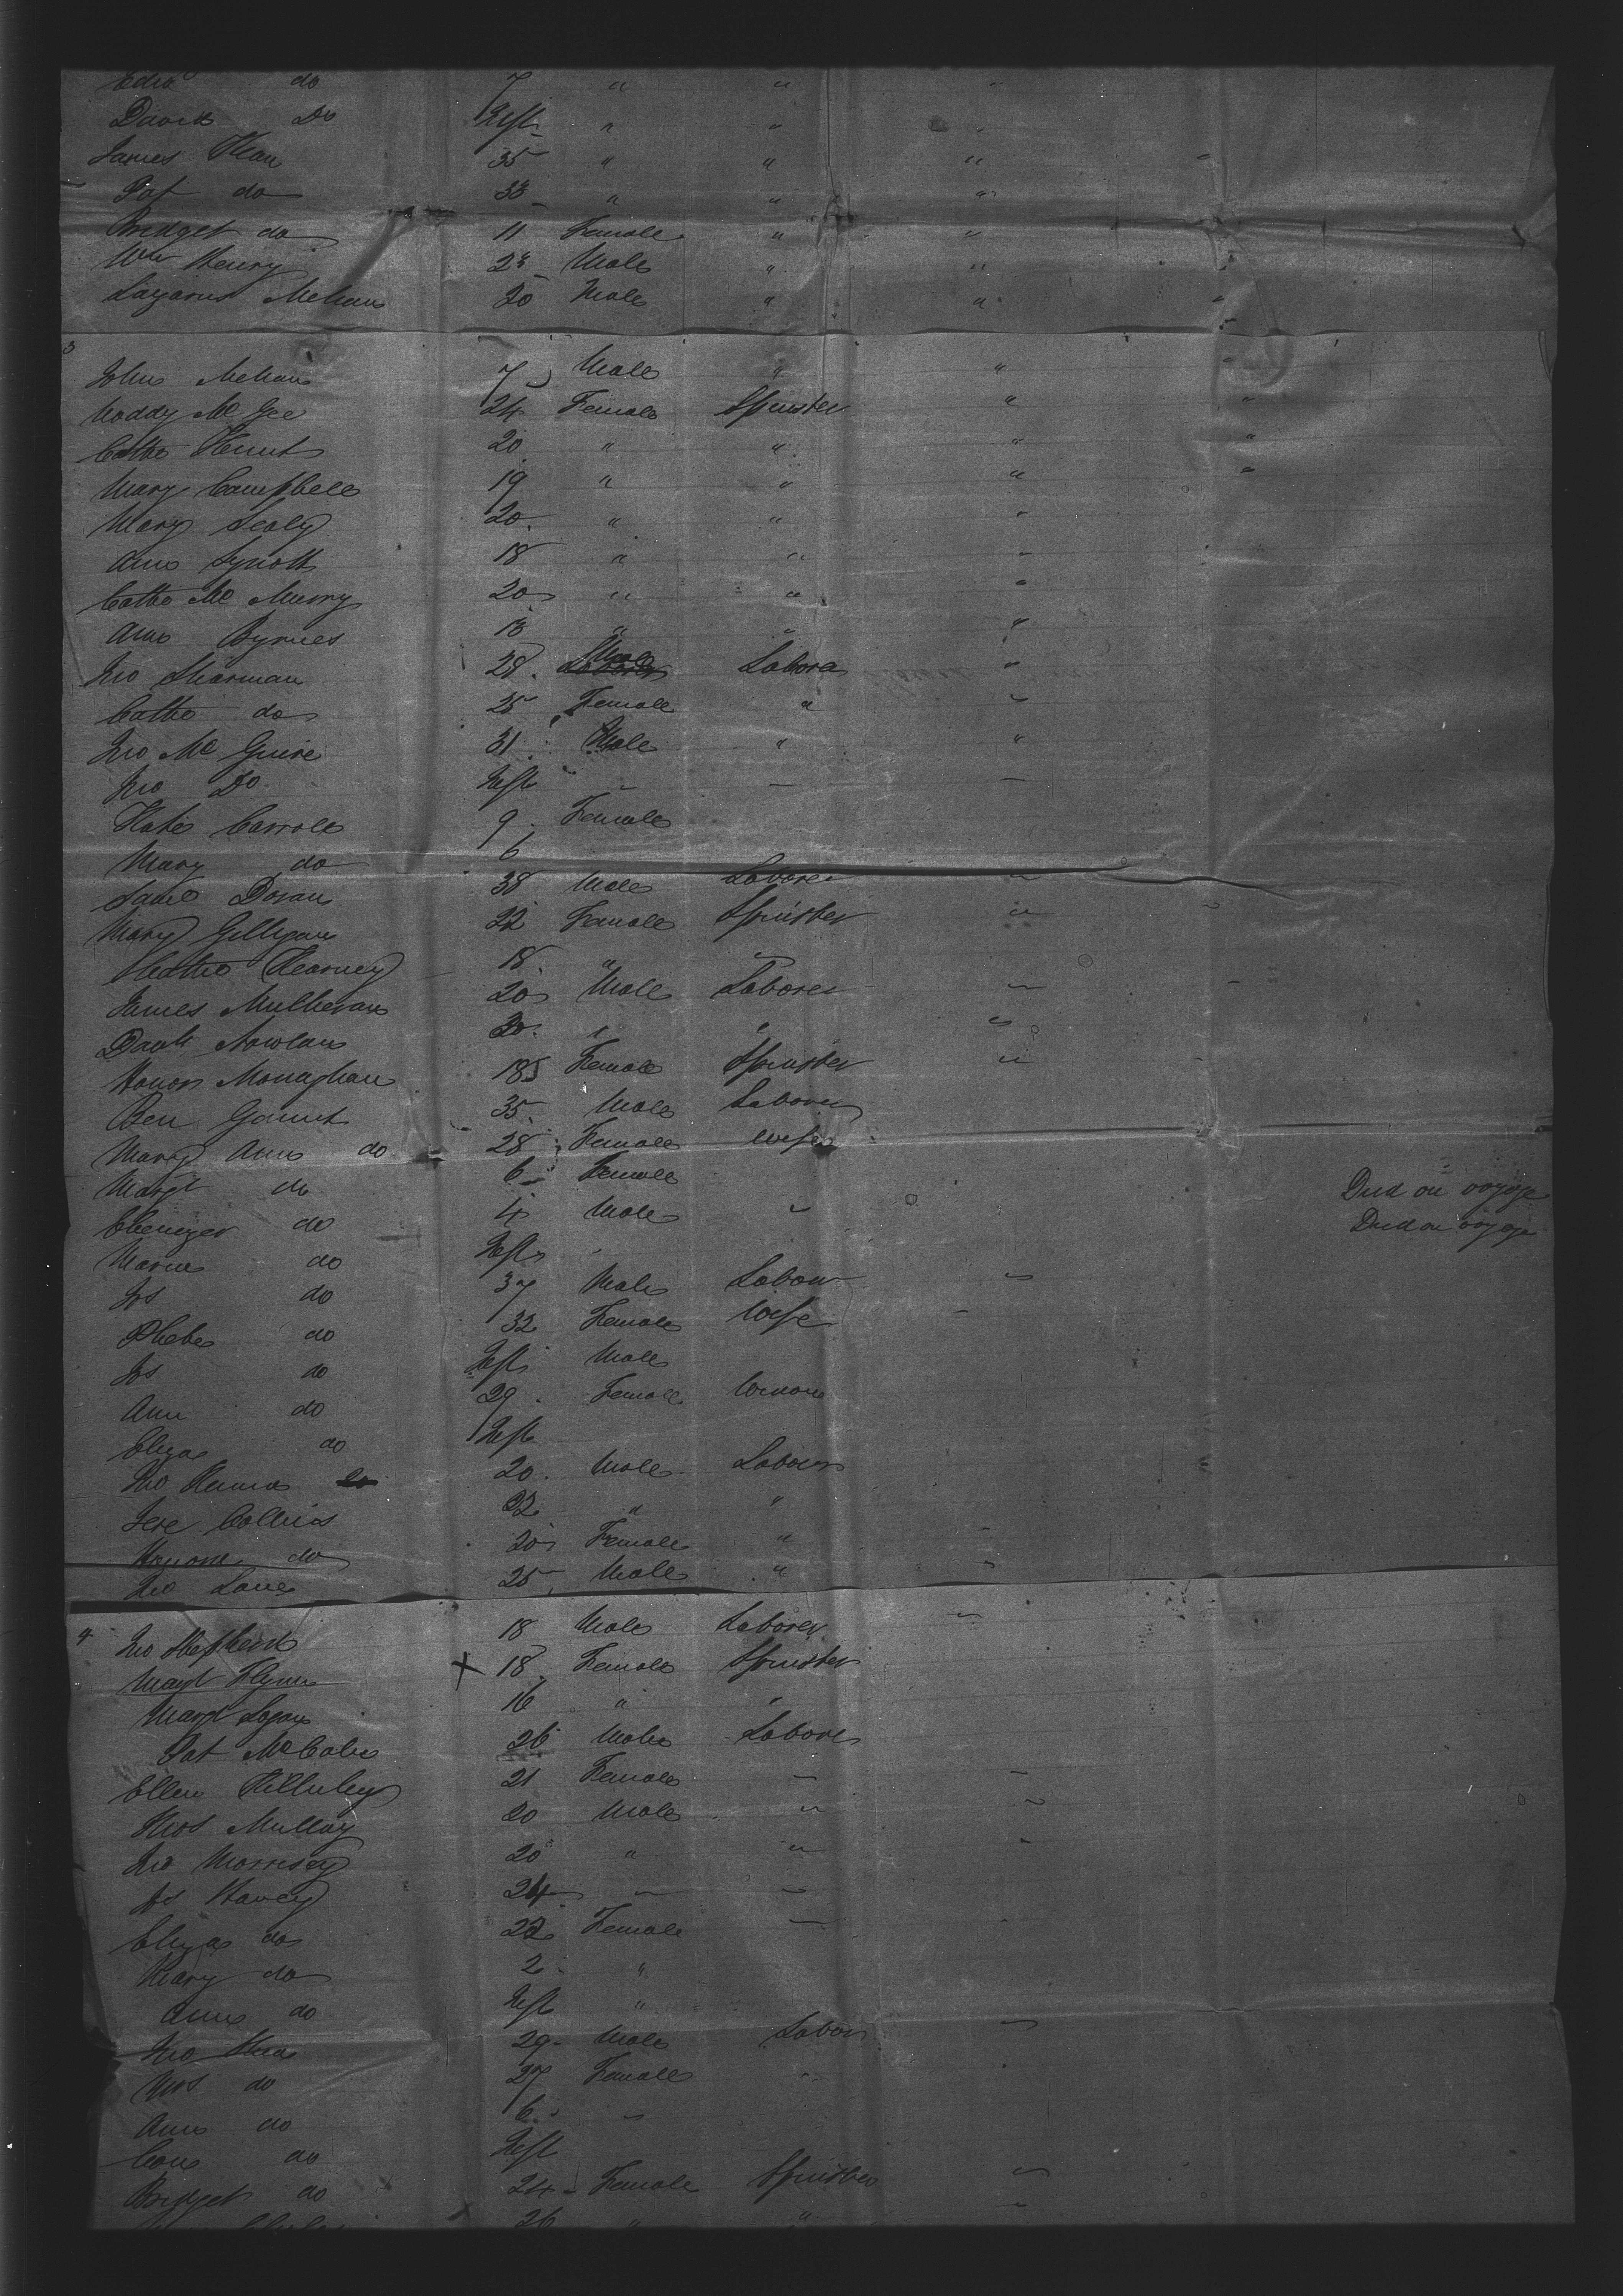 do 7 " " "
David Do Inft " " "
James Kean 35 " " "
Pat do 33 " " "
Bridget do 11 Female " "
Wm Henry 23 Male " "
Lazarus Mehan 20 Male " "
3
John Mehan 7 Male " " "
Noddy Mc Gee 24 Female Spinster " "
Cathe 20 " " " "
Mary Campbell 19 " " " "
Mary Sealy 20 " " "
Ann Synott 18 " " "
Cathe Mc Murry 20 " " "
Ann Byrnes 18 " " "
Jno Sharman 28 Male Labora "
Cathe do 25 Female " "
Jno Mc Guire 31 Male " "
Jno Do Inft " — —
Kate Carroll 9 Female
Mary do 6
Jane Doran 38 Male Laborer "
Mary Gilligan 22 Female Spinster "
Cathe Kearney 18 " "
James Mulheran 20 Male Laborer "
Nowlan 30 " " "
Honor Monaghan 18 Female Spinster "
Ben Gaunt 35 Male Laborer
Mary Ann do 28 Female wife
Margt do 6 Female
Ebenezer do 4 Male " Died on voyage
Maria do Inft Died on voyage
Jos do 37 Male Labour "
Phebe do 32 Female Wife
Jos do Inft Male
Ann do 29 Female
Eliza do Inft
Jno 20 Male Labour
Jere Collins 22 " "
do 20 Female "
Jno Lane 25 Male " "
4
Jno Shepherd 18 Male Laborer "
Margt Flynn X 18 Female Spinster
Margt Logan 16 " "
Pat McCabe 26 Male Labore
Ellen 21 Female " "
Thos Mullay 20 Male " "
Jno Morrisey 20 " " "
Js 24 " "
Eliza do 22 Female "
Mary do 2 "
Ann do Inft "
Jno 29 Male Labor "
Mrs do 27 Female "
Ann do 6 "
Con do Inft
Bridget do 24 Female Spinster "
26 " " "